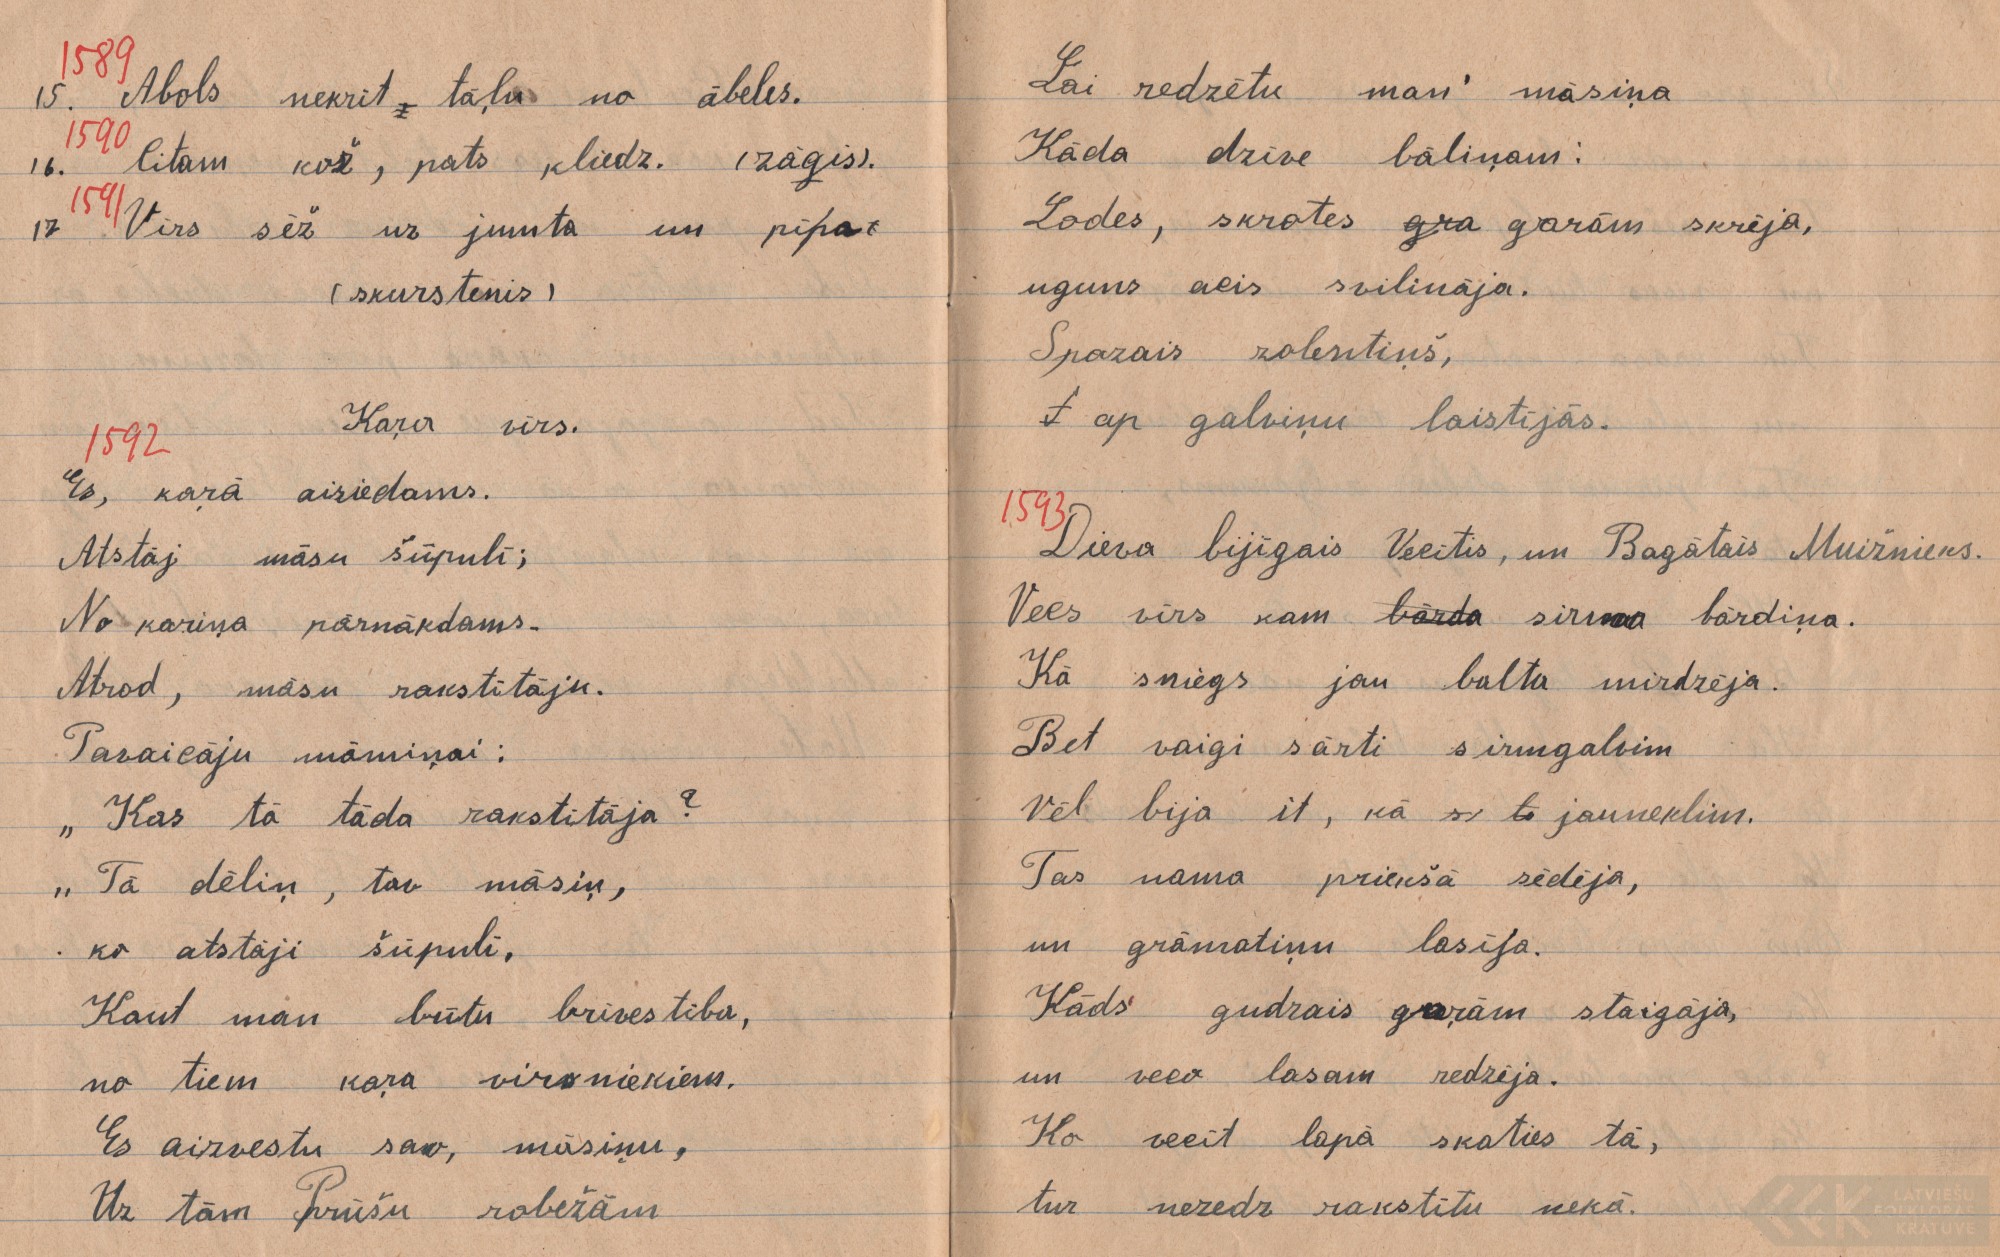 1589
15. Abols nekrīt tāļu no ābeles.
1590
16. Citam kož, pats kliedz. (zāgis).
1591
17 Vīrs sēž uz jumta un pīpā
(skurstenis)
Kaŗa vīrs.
1592
Es, kaŗā aiziedams.
Atstāj māsu šūpulī;
No kariņa pārnākdams-
Atrod, māsu rakstītāju.
Pavaicāju māmiņai:
„Kas tā tāda rakstītāja?
„Tā dēliņ, tav māsiņ,
ko atstāji šūpulī.
Kaut man būtu brīvestība,
no tiem kaŗa virsniekiem.
Es aizvestu savo, māsiņu,
Uz tām Prūšu robežām
Lai redzētu man' māsiņa
Kāda dzīve bāliņam:
Lodes, skrotes gra garām skrēja,
uguns acis svilināja.
Spazais zobentiņš,
ap galviņu laistījās.
1593
Dieva bijīgais Vecītis, un Bagātais Muižnieks.
Vecs vīrs kam bārda sirma bārdiņa.
Kā sniegs jau balta mirdzēja.
Bet vaigi sārti sirmgalvim
Vēl bija it, kā jauneklim.
Tas nama priekšā sēdēja,
un grāmatiņu lasīja.
Kāds gudrais gaŗām staigāja,
un veco lasam redzēja.
Ko vecīt lapā skaties tā,
tur neredz rakstītu nekā.
LATVIEŠU
FOLKLORAS
KRĀTUVE